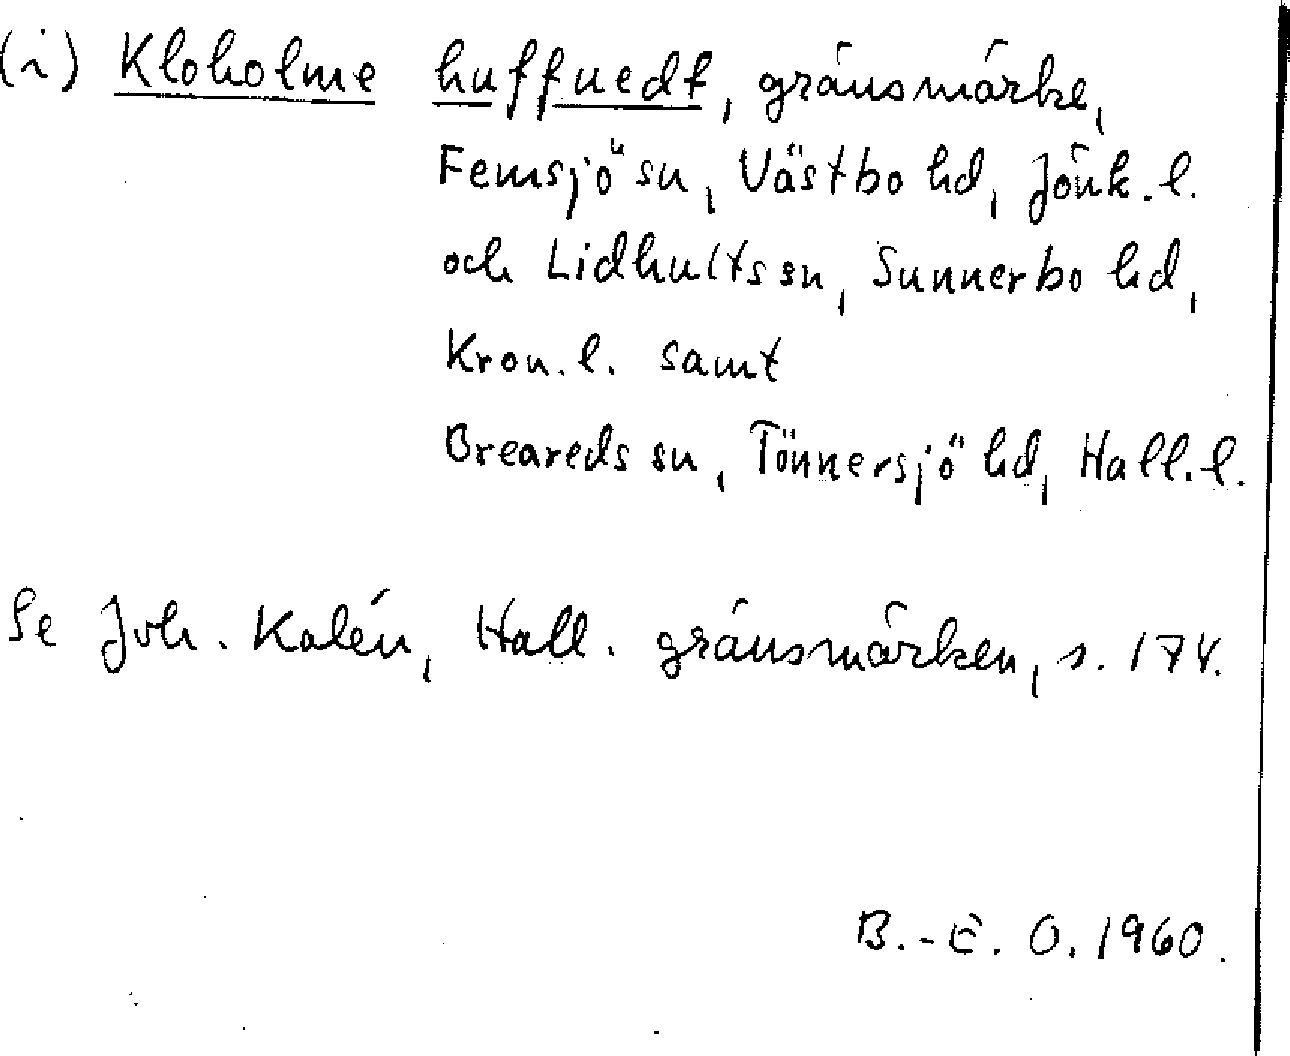 (i) Kloholme huffuedt, gränsmärke,
Femsjö sn, Västbo hd, Jönk. l.
och Lidhults sn, Sunnerbo hd,
Kron. l. samt
Breareds sn, Tönnersjö hd, Hall. l.
Se Joh. Kalén, Hall. gränsmärken, s. 174.
B.-E. O. 1960.